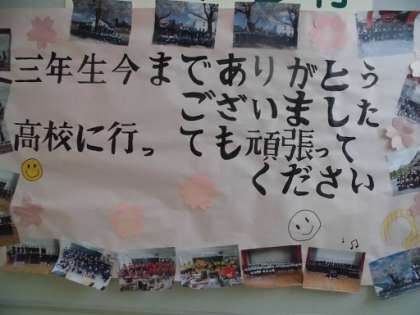 三年生今までありがとう
ございました
高校に行っても頑張って
ください